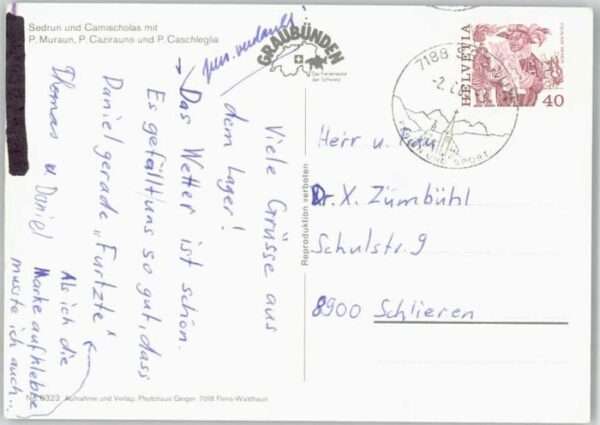 Sedrun und Camischolas mit
P. Muraun, P. Cazirauns und P. Caschleglia
GRAUBÜNDEN
Die Ferienecke
der Schweiz
Viele Grüsse aus
dem Lager!
Das Wetter ist schön.
Es gefällt uns so gut, dass
Daniel gerade „Furtzte"
Thomas u. Daniel
Als ich die
Marke aufklebte
musste ich auch...
Reproduktion verboten
7188
-2.
SPORT
HELVETIA
40
Herr u. Frau
Dr. X. Zumbühl
Schulstr. 9
8900 Schlieren
6323 Aufnahme und Verlag: Photohaus Geiger 7018 Flims-Waldhaus